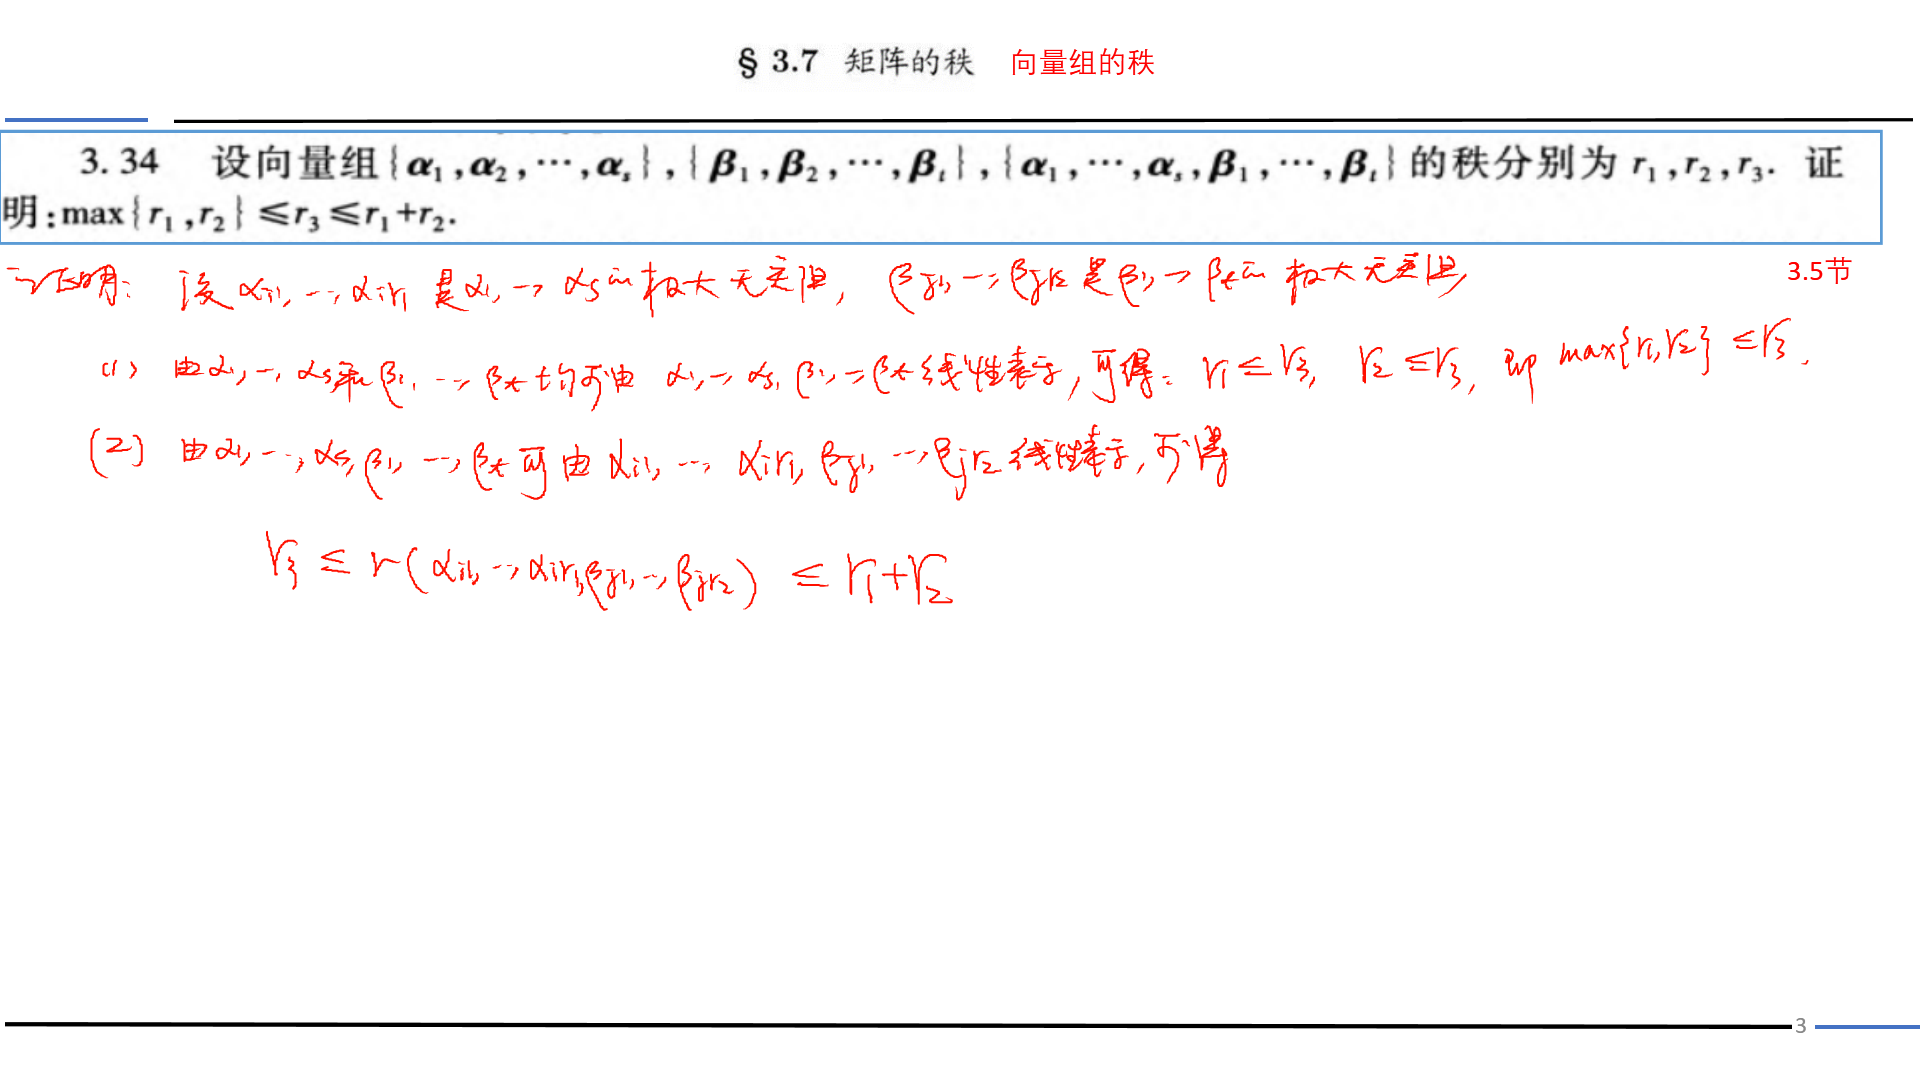 § 3.7 矩阵的秩 向量组的秩
3.34 设向量组{α₁,α₂,⋯,αₛ},{β₁,β₂,⋯,βₜ},{α₁,⋯,αₛ,β₁,⋯,βₜ}的秩分别为 r₁,r₂,r₃. 证
明:max{r₁,r₂}≤r₃≤r₁+r₂.
证明: 设 αi₁, ⋯, αir₁ 是α₁, ⋯, αs的极大无关组, βj₁, ⋯, βjr₂是β₁, ⋯, βt的极大无关组
3.5节
(1) 由α₁, ⋯, αs和β₁, ⋯, βt均可由 α₁, ⋯, αs, β₁, ⋯, βt线性表示, 可得: r₁ ≤ r₃, r₂ ≤ r₃, 即 max{r₁,r₂} ≤ r₃.
(2) 由α₁, ⋯, αs, β₁, ⋯, βt可由 αi₁, ⋯, αir₁, βj₁, ⋯, βjr₂线性表示, 可得
r₃ ≤ r(αi₁, ⋯, αir₁, βj₁, ⋯, βjr₂) ≤ r₁+r₂
3